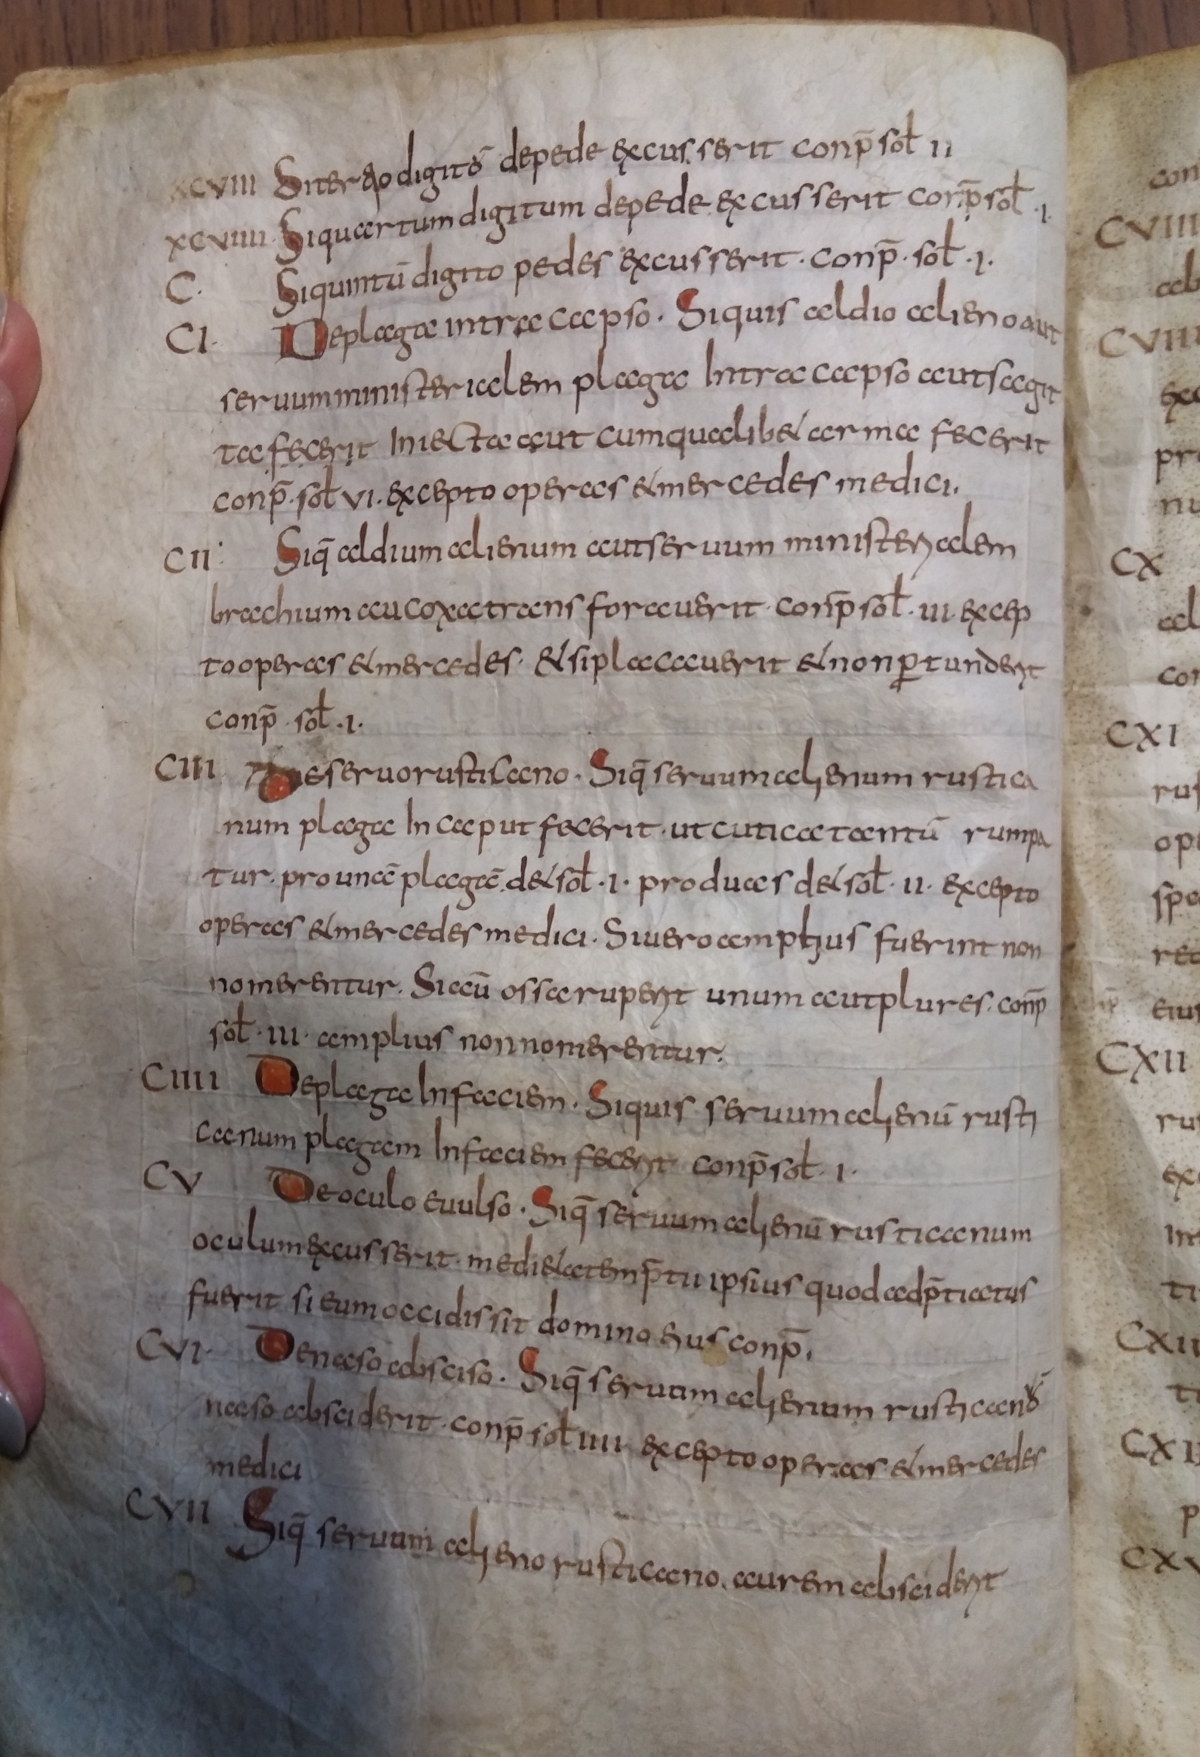 XCVIII Si tertio digito depede excusserit conp̄ sol II
XCVIIII Si quartum digitum depede excusserit conp̄ sol · I ·
C · Si quintū digito pedes excusserit · conp̄ · sol · I ·
CI · De plaga intra capso · Si quis aldio alieno aut
seruum ministerialem plaga Intra capso aut sagit
ta fecerit Iniecta aut cumqualibet arma fecerit
conp̄ · sol VI · excepto operas et mercedes medici ·
CII · Siq̄ aldium alienum aut seruum ministerialem
brachium au coxa trans forauerit · conp̄ sol · III · excep
to operas et mercedes · et si placauerit et non ꝑtunderit
conp̄ · sol · I ·
CIII De seruo rusticano · Siq̄ seruum alienum rustica
num plaga In caput fecerit · ut cutica tantū rumpa
tur · pro unā plagā · det sol · I · pro duas det sol · II · excepto
operas et mercedes medici · Si uero amplius fuerint non
nomerentur · Si aū ossa ruperit unum aut plures · conp̄
sol · III · amplius non nomerentur ·
CIIII De plaga In faciem · Si quis seruum alienū rusti
canum plagam In faciem fecerit conp̄ sol · I ·
CV De oculo euulso · Siq̄ seruum alienū rusticanum
oculum excusserit · medietatem p̄tii ipsius quod adp̄tiatus
fuerit si eum occidissit domino eius conp̄ ·
CVI · De naso absciso · Siq̄ seruum alienum rusticano
naso absciderit · conp̄ sol IIII excepto operas et mercedes
medici
CVII Siq̄ seruum alieno rusticano · aurem absciderit
con
CVIII
CX
CXI
CXII